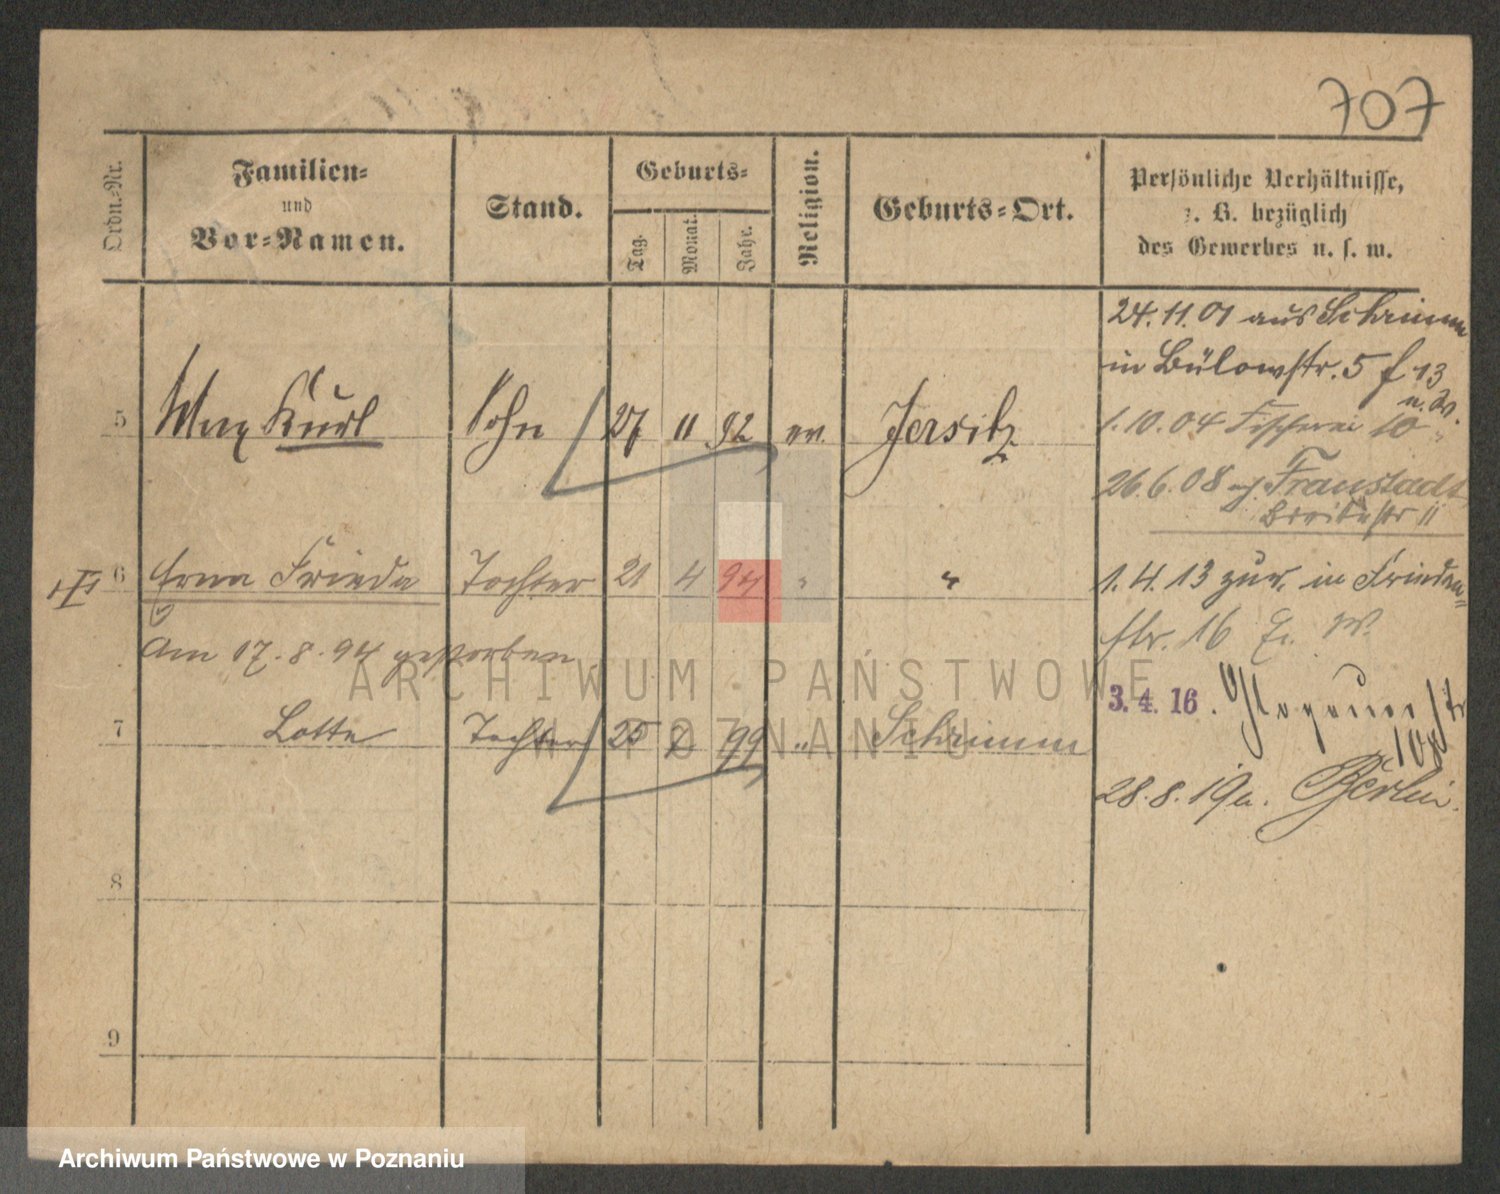 707
Ordn.-Nr.
Familien-
und
Vor-Namen.
Stand.
Geburts-
Tag.
Monat.
Jahr.
Religion.
Geburts-Ort.
Persönliche Verhältnisse,
z. B. bezüglich
des Gewerbes u. s. w.
24. 11. 01 aus Schrimm
in Bülowstr. 5
5 Max Kurt Sohn 27 11 92 ev. Jersitz
1. 10. 04 Fischerei 10
26. 6. 08 Fraustadt
Breitestr 11
6 Erna Frieda Tochter 21 4 94 " "
1. 4. 13 zur. in Frieden-
str. 16
Am 17. 8. 94 gestorben
3. 4. 16.
7 Lotte Tochter 25 2 99 " Schrimm
28. 8. 19 Berlin.
8
9
ARCHIWUM PAŃSTWOWE
W POZNANIU
Archiwum Państwowe w Poznaniu